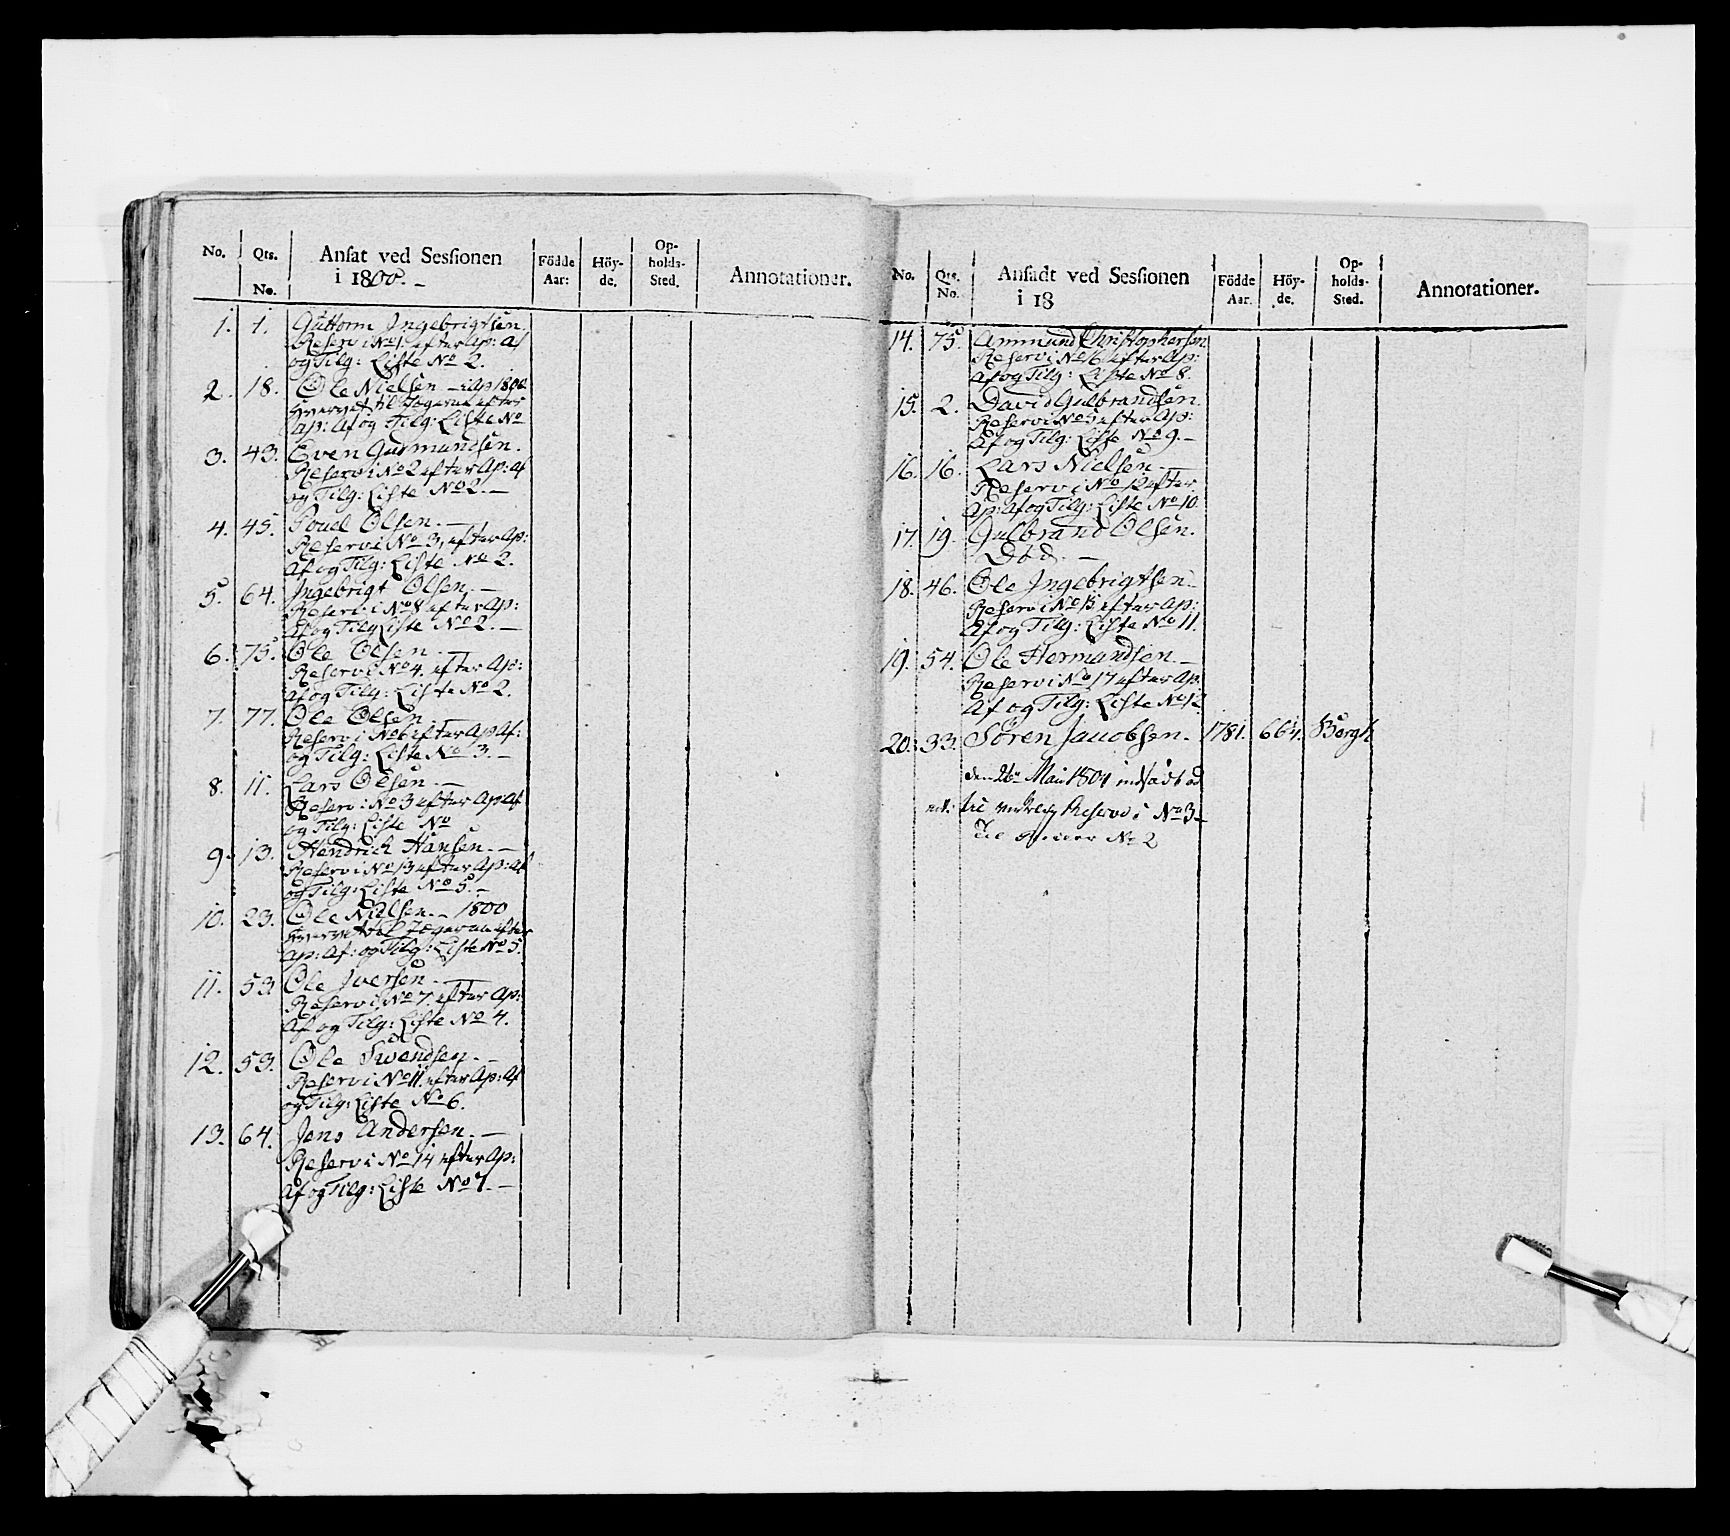 No. Qts. No. Ansat ved Sessionen i 1800. Födde Aar: Höy-de. Op-holds-Sted. Annotationer.
1. 1. Guttorm Ingebrigtsen.
Reserv i No 1. efter Ap: Af
og Tilg: Liste No 2.
2. 18. Ole Nielsen 1800
hvervet til Jægerne efter
Ap: Af og Tilg: Liste No
3. 43. Even Gudmundsen.
Reserv i No 2 efter Ap: Af
og Tilg: Liste No 2.
4. 45. Povel Olsen.
Reserv i No 3, efter Ap:
Af og Tilg: Liste No 2.
5. 64. Ingebrigt Olsen.
Reserv i No 8 efter Ap:
Af og Tilg Liste No 2.
6. 75. Ole Olsen.
Reserv i No 4. efter Ap:
Af og Tilg: Liste No 2.
7. 77. Ole Olsen.
Reserv i No 6 efter Ap Af:
og Tilg: Liste No 3.
8. 11. Lars Olsen.
Reserv i No 3 efter Ap: Af
og Tilg: Liste No
9. 13. Hendrich Hansen.
Reserv i No 13 efter Ap: Af
og Tilg: Liste No 5.
10. 23. Ole Nielsen. 1800
hvervet til Jægerne efter
Ap: Af: og Tilg: Liste No 5.
11. 53 Ole Iversen
Reserv i No 7. efter Ap:
Af og Tilg: Liste No 4.
12. 53. Ole Svendsen.
Reserv i No 11. efter Ap: Af
og Tilg: Liste No 6.
13. 64. Jens Andersen.
Reserv i No 14 efter Ap:
Af og Tilg: Liste No 7.
No. Qts. No. Ansadt ved Sessionen i 18 Födde Aar. Höy-de. Op-holds-Sted. Annotationer.
14. 75. Ammund Christophersen
Reserv i No 16 efter Ap:
Af og Tilg: Liste No 8.
15. 2. David Gulbrandsen.
Reserv i No 5 efter Ap:
Af og Tilg: Liste No 9.
16. 16. Lars Nielsen.
Reserv i No 12 efter
Ap: Af og Tilg: Liste No 10.
17. 19. Gulbrand Olsen.
Död.
18. 46. Ole Ingebrigtsen.
Reserv i No 15 efter Ap:
Af og Tilg: Liste No 11.
19. 54. Ole Hermandsen.
Reserv i No 17 efter Ap
Af og Tilg: Liste No 12
20. 33. Sören Jacobsen. 1781. 66¼. Bergh
den 26de Maii 1801 indsadt
Reserve i No 3
No 2